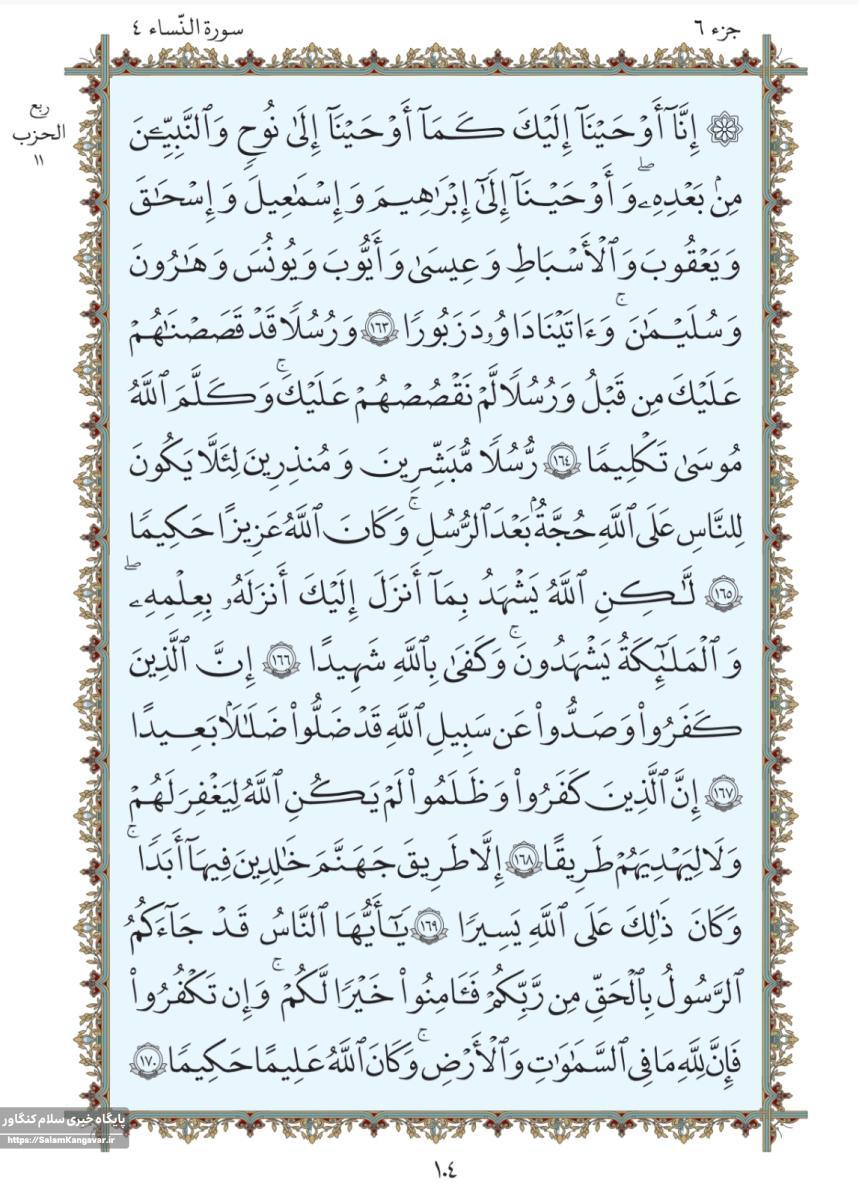 جزء ٦
سورة النّساء ٤
ربع
الحزب
١١
۞ إِنَّآ أَوْحَيْنَآ إِلَيْكَ كَمَآ أَوْحَيْنَآ إِلَىٰ نُوحٍ وَٱلنَّبِيِّـۧنَ
مِنۢ بَعْدِهِۦۖ وَأَوْحَيْنَآ إِلَىٰٓ إِبْرَٰهِيمَ وَإِسْمَٰعِيلَ وَإِسْحَٰقَ
وَيَعْقُوبَ وَٱلْأَسْبَاطِ وَعِيسَىٰ وَأَيُّوبَ وَيُونُسَ وَهَٰرُونَ
وَسُلَيْمَٰنَۚ وَءَاتَيْنَا دَاوُۥدَ زَبُورًا ١٦٣ وَرُسُلًا قَدْ قَصَصْنَٰهُمْ
عَلَيْكَ مِن قَبْلُ وَرُسُلًا لَّمْ نَقْصُصْهُمْ عَلَيْكَۚ وَكَلَّمَ ٱللَّهُ
مُوسَىٰ تَكْلِيمًا ١٦٤ رُّسُلًا مُّبَشِّرِينَ وَمُنذِرِينَ لِئَلَّا يَكُونَ
لِلنَّاسِ عَلَى ٱللَّهِ حُجَّةٌۢ بَعْدَ ٱلرُّسُلِۚ وَكَانَ ٱللَّهُ عَزِيزًا حَكِيمًا
١٦٥ لَّٰكِنِ ٱللَّهُ يَشْهَدُ بِمَآ أَنزَلَ إِلَيْكَ أَنزَلَهُۥ بِعِلْمِهِۦۖ
وَٱلْمَلَٰٓئِكَةُ يَشْهَدُونَۚ وَكَفَىٰ بِٱللَّهِ شَهِيدًا ١٦٦ إِنَّ ٱلَّذِينَ
كَفَرُوا۟ وَصَدُّوا۟ عَن سَبِيلِ ٱللَّهِ قَدْ ضَلُّوا۟ ضَلَٰلًۢا بَعِيدًا
١٦٧ إِنَّ ٱلَّذِينَ كَفَرُوا۟ وَظَلَمُوا۟ لَمْ يَكُنِ ٱللَّهُ لِيَغْفِرَ لَهُمْ
وَلَا لِيَهْدِيَهُمْ طَرِيقًا ١٦٨ إِلَّا طَرِيقَ جَهَنَّمَ خَٰلِدِينَ فِيهَآ أَبَدًاۚ
وَكَانَ ذَٰلِكَ عَلَى ٱللَّهِ يَسِيرًا ١٦٩ يَٰٓأَيُّهَا ٱلنَّاسُ قَدْ جَآءَكُمُ
ٱلرَّسُولُ بِٱلْحَقِّ مِن رَّبِّكُمْ فَـَٔامِنُوا۟ خَيْرًا لَّكُمْۚ وَإِن تَكْفُرُوا۟
فَإِنَّ لِلَّهِ مَا فِى ٱلسَّمَٰوَٰتِ وَٱلْأَرْضِۚ وَكَانَ ٱللَّهُ عَلِيمًا حَكِيمًا ١٧٠
پایگاه خبری سلام کنگاور
https://SalamKangavar.ir
١٠٤